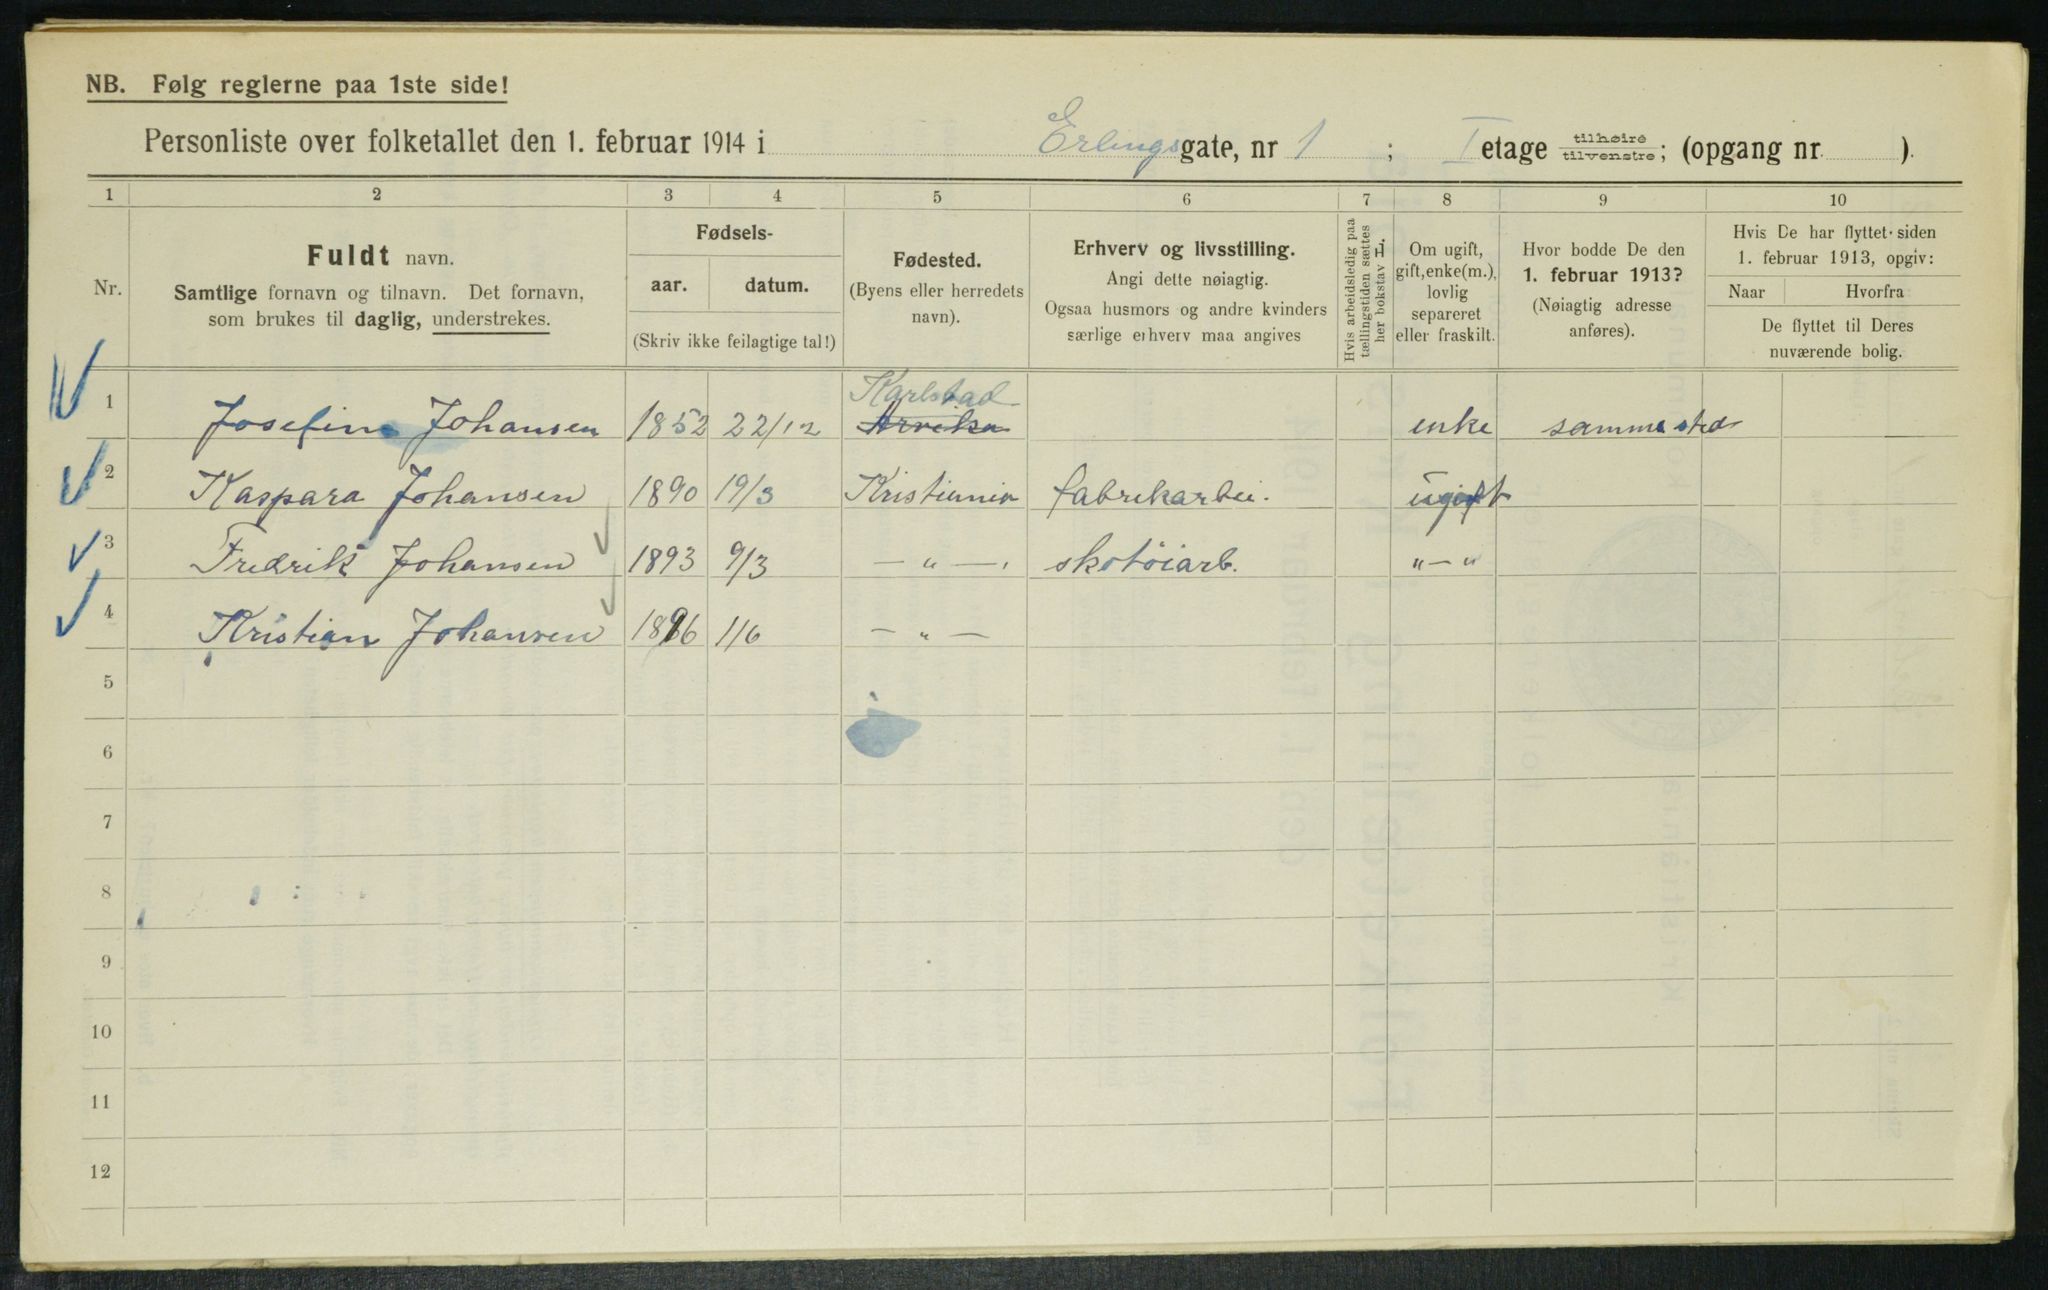 NB. Følg reglerne paa 1ste side!
Personliste over folketallet den 1. februar 1914 i Erlingsgate, nr 1 ; I etage tilhøire tilvenstre; (opgang nr. ).
1 2 3 4 5 6 7 8 9 10
Nr.
Fuldt navn.
Samtlige fornavn og tilnavn. Det fornavn,
som brukes til daglig, understrekes.
Fødsels-
aar. datum.
(Skriv ikke feilagtige tal!)
Fødested.
(Byens eller herredets
navn).
Erhverv og livsstilling.
Angi dette nøiagtig.
Ogsaa husmors og andre kvinders
særlige erhverv maa angives
Hvis arbeidsledig paa
tællingstiden sættes
her bokstav L.
Om ugift,
gift, enke(m.),
lovlig
separeret
eller fraskilt.
Hvor bodde De den
1. februar 1913?
(Nøiagtig adresse
anføres).
Hvis De har flyttet siden
1. februar 1913, opgiv:
Naar Hvorfra
De flyttet til Deres
nuværende bolig.
Karlstad
1 Josefine Johansen 1852 22/12 Arvika enke sammested
2 Kaspara Johansen 1890 19/3 Kristiania fabrikarbei. ugift
3 Fredrik Johansen 1893 9/3 — " —. skotöiarb. "—"
4 Kristian Johansen 1896 1/6 — " —
5
6
7
8
9
10
11
12